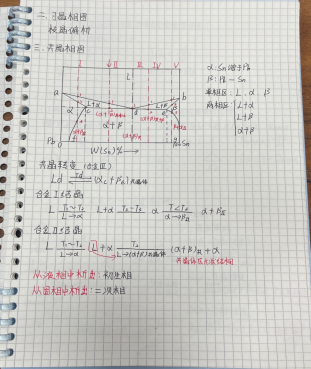 二. 匀晶相图
枝晶偏析
三. 共晶相图
I II III IV V
L
a b
α L+α c d L+β e β
α+β
Pb Sn
W(Sn)%→
α: Sn溶于Pb
β: Pb→Sn
单相区: L. α. β
两相区: L+α
L+β
α+β
共晶转变 (合金Ⅲ)
Ld —Td→ (αc+βe)共晶体
合金Ⅰ结晶:
L T₁~T₂ L→α L+α T₂~T₃ α T<T₃ α→βⅡ α+βⅡ
合金Ⅱ结晶:
L T₁~T₂ L→α L+α L→(α+β)共晶体 (α+β)共+α
从液相中析出: 初生相
从固相中析出: 二次相